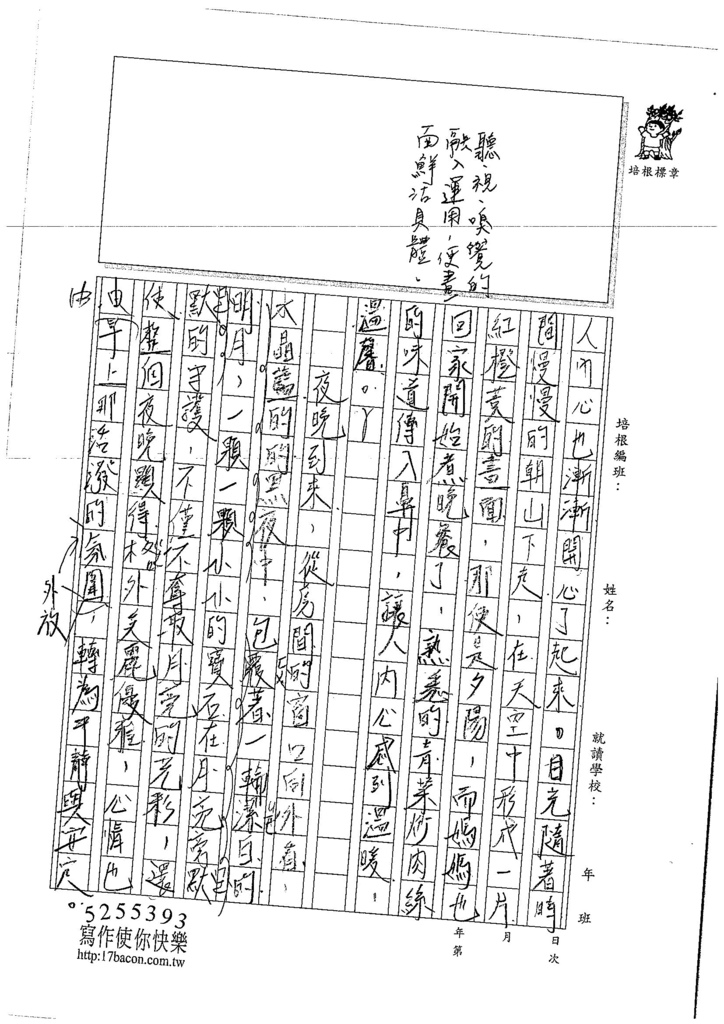 聽、視、嗅覺的
融入運用,使畫
面鮮活具體。
培根標章
培根編班:
姓名:
就讀學校:
年 班
月 日
年第 次
人內心也漸漸開心了起來。目光隨著時
間慢慢的朝山下走,在天空中形成一片
紅橙黃的畫面,那便是夕陽,而媽媽也
回家開始煮晚餐了,熟悉的青菜炒肉絲
的味道傳入鼻中,讓人內心感到溫暖、
溫馨。
夜晚到來,從房間的窗口向外看,
水晶藍的的黑夜中,包覆著一輪潔白的
明月,一顆一顆小小的寶石在月亮旁默
默的守護,不僅不奪取月亮的光彩,還
使整個夜晚顯得格外美麗優雅,心情也
由早上那活潑的氛圍,轉為平靜與安定
。
外放
5255393
寫作使你快樂
http:17bacon.com.tw